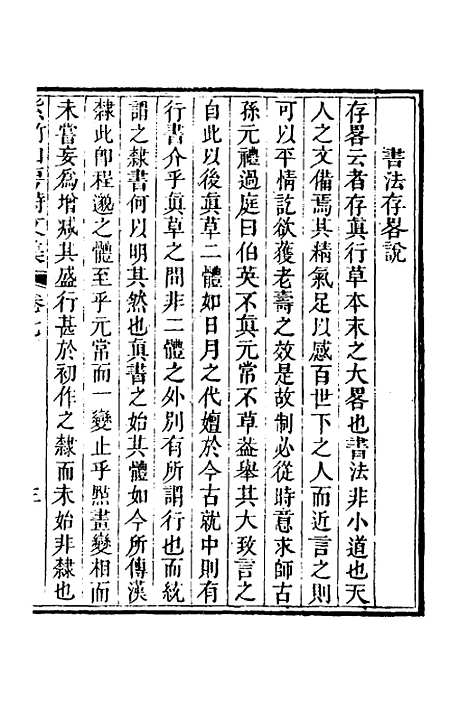 書法存畧說
存畧云者存眞行草本末之大畧也書法非小道也天
人之文備焉其精氣足以感百世下之人而近言之則
可以平情訖欲獲老壽之效是故制必從時意求師古
孫元禮過庭曰伯英不眞元常不草葢舉其大致言之
自此以後眞草二體如日月之代嬗於今古就中則有
行書介乎眞草之間非二體之外別有所謂行也而統
謂之隸書何以明其然也眞書之始其體如今所傳漢
隸此卽程邈之體至乎元常而一變止乎㸃畫變相而
未嘗妄爲增減其盛行甚於初作之隸而未始非隸也
紫竹山房詩文集
卷七
三